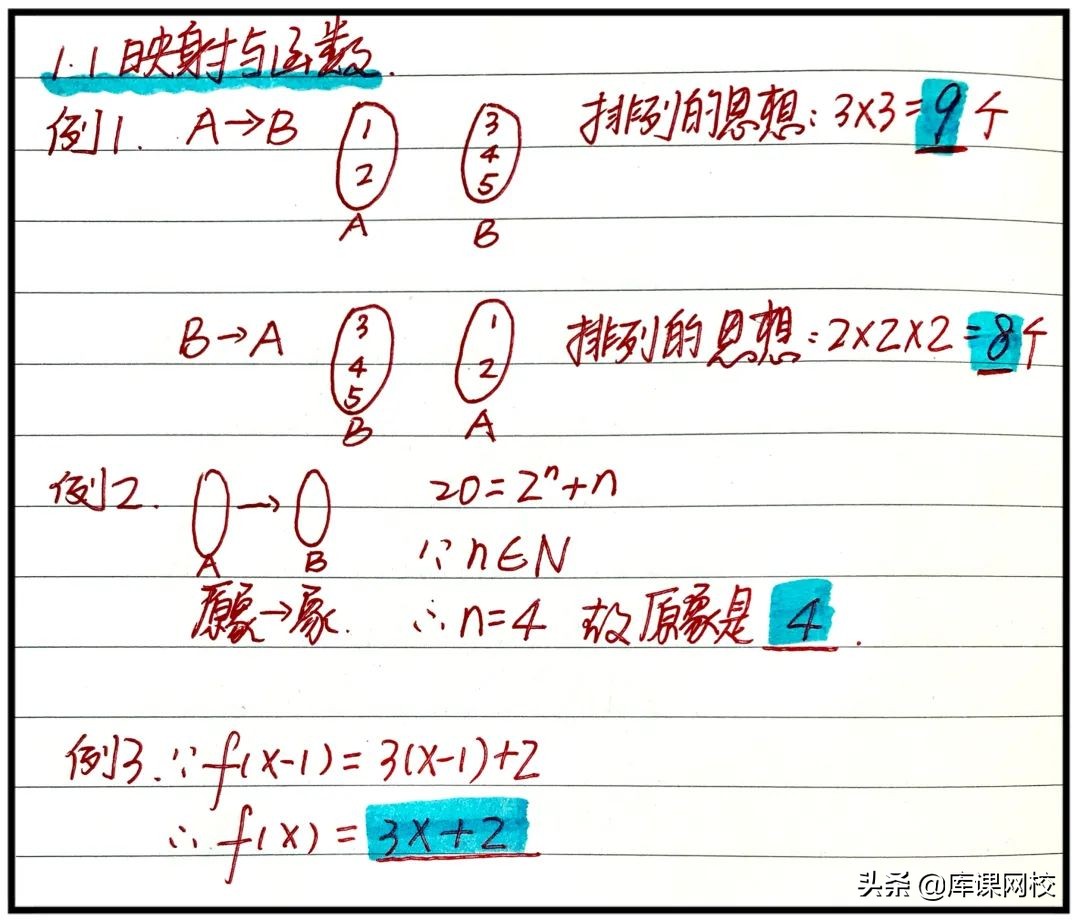 1.1 映射与函数.
例1. A→B 1 2 A 3 4 5 B 排列的思想: 3×3=9个
B→A 3 4 5 B 1 2 A 排列的思想: 2×2×2=8个
例2. A → B 20=2ⁿ+n
∵n∈N
原象→象. ∴n=4 故原象是 4.
例3. ∵f(x-1)=3(x-1)+2
∴f(x)=3x+2
头条 @库课网校